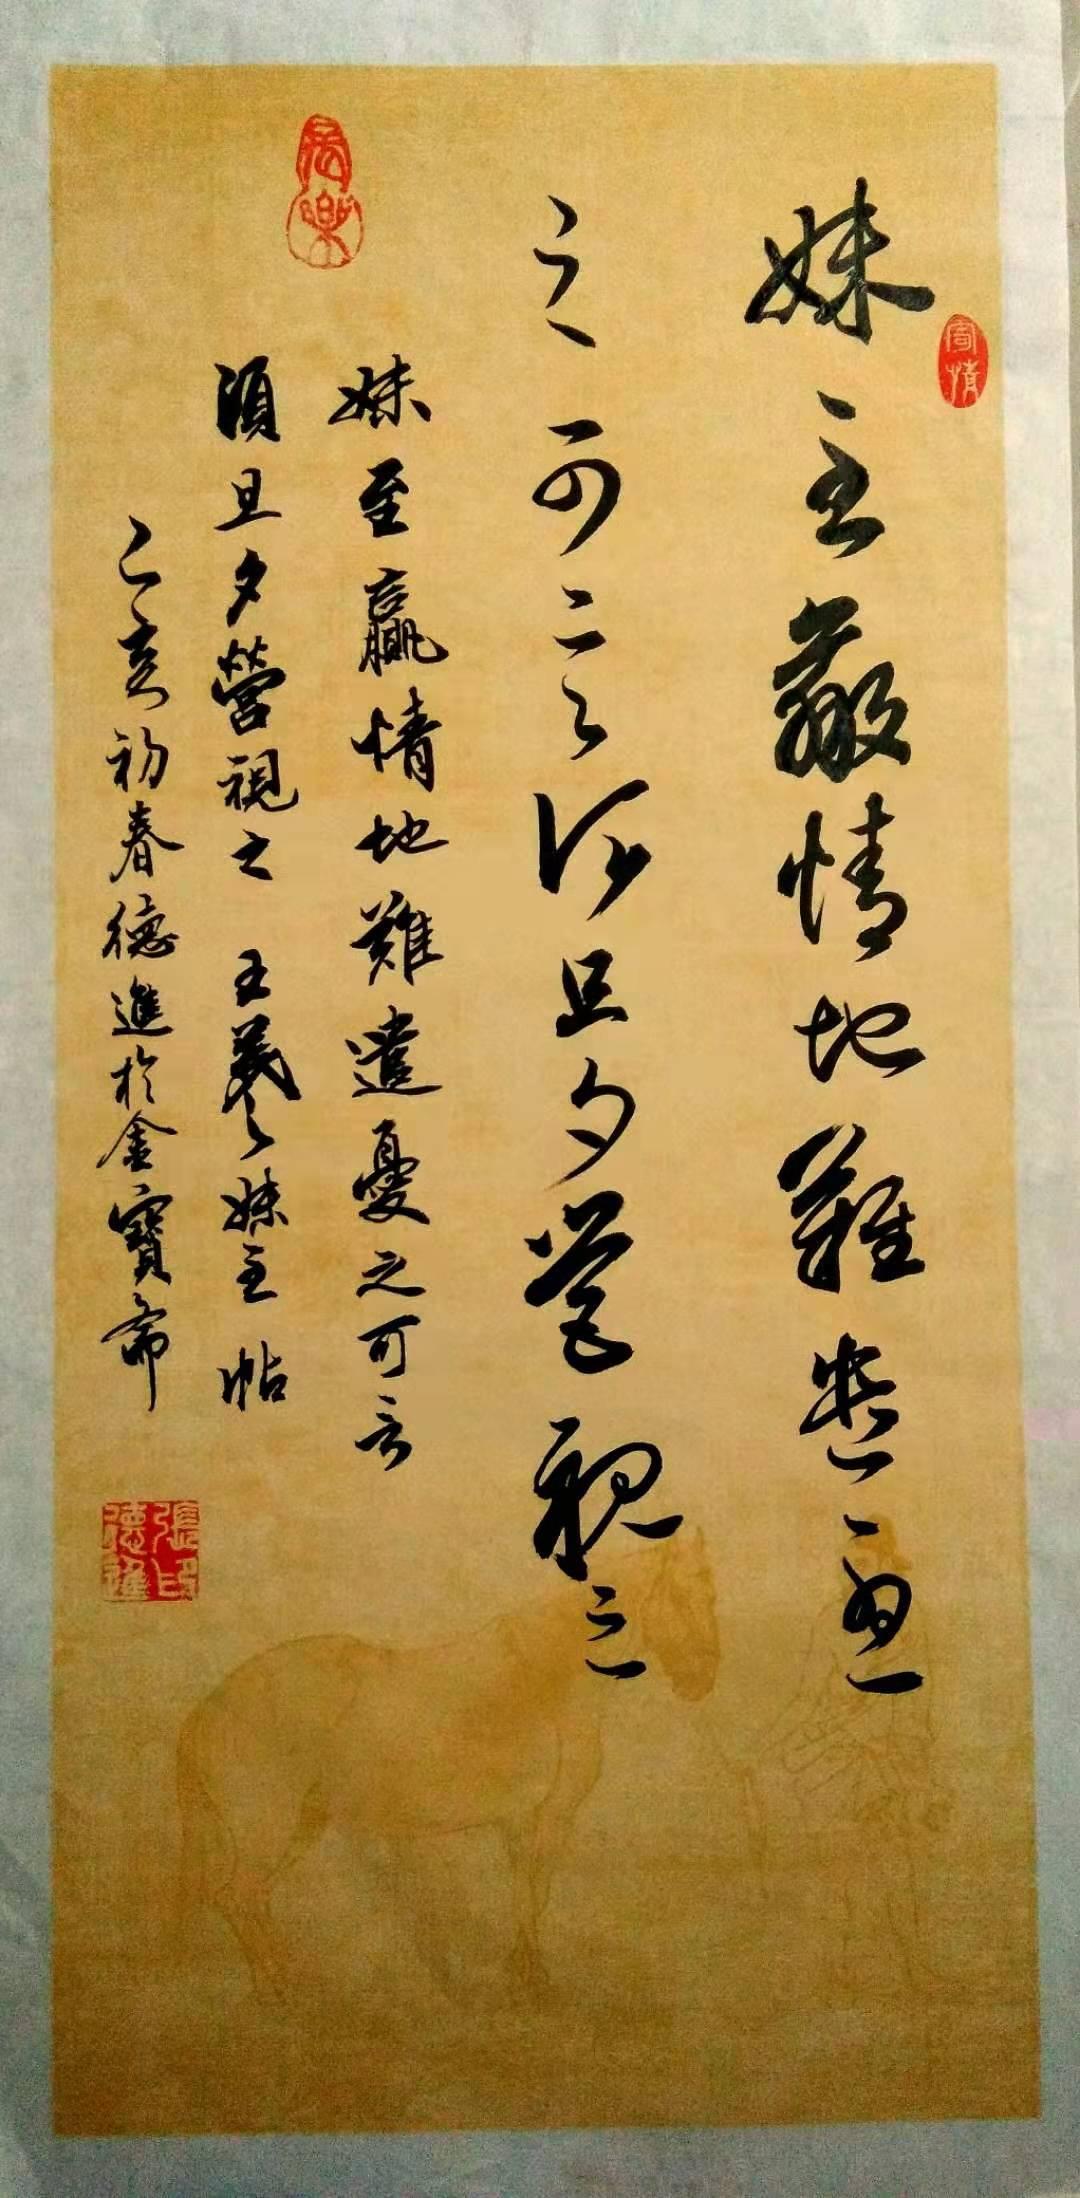 妹至羸情地難遣憂
之可言須旦夕營視之
妹至羸情地難遣憂之可言
須旦夕營視之 王羲之妹至帖
己亥初春德進於金寶齋
寄情
長樂
張德進印